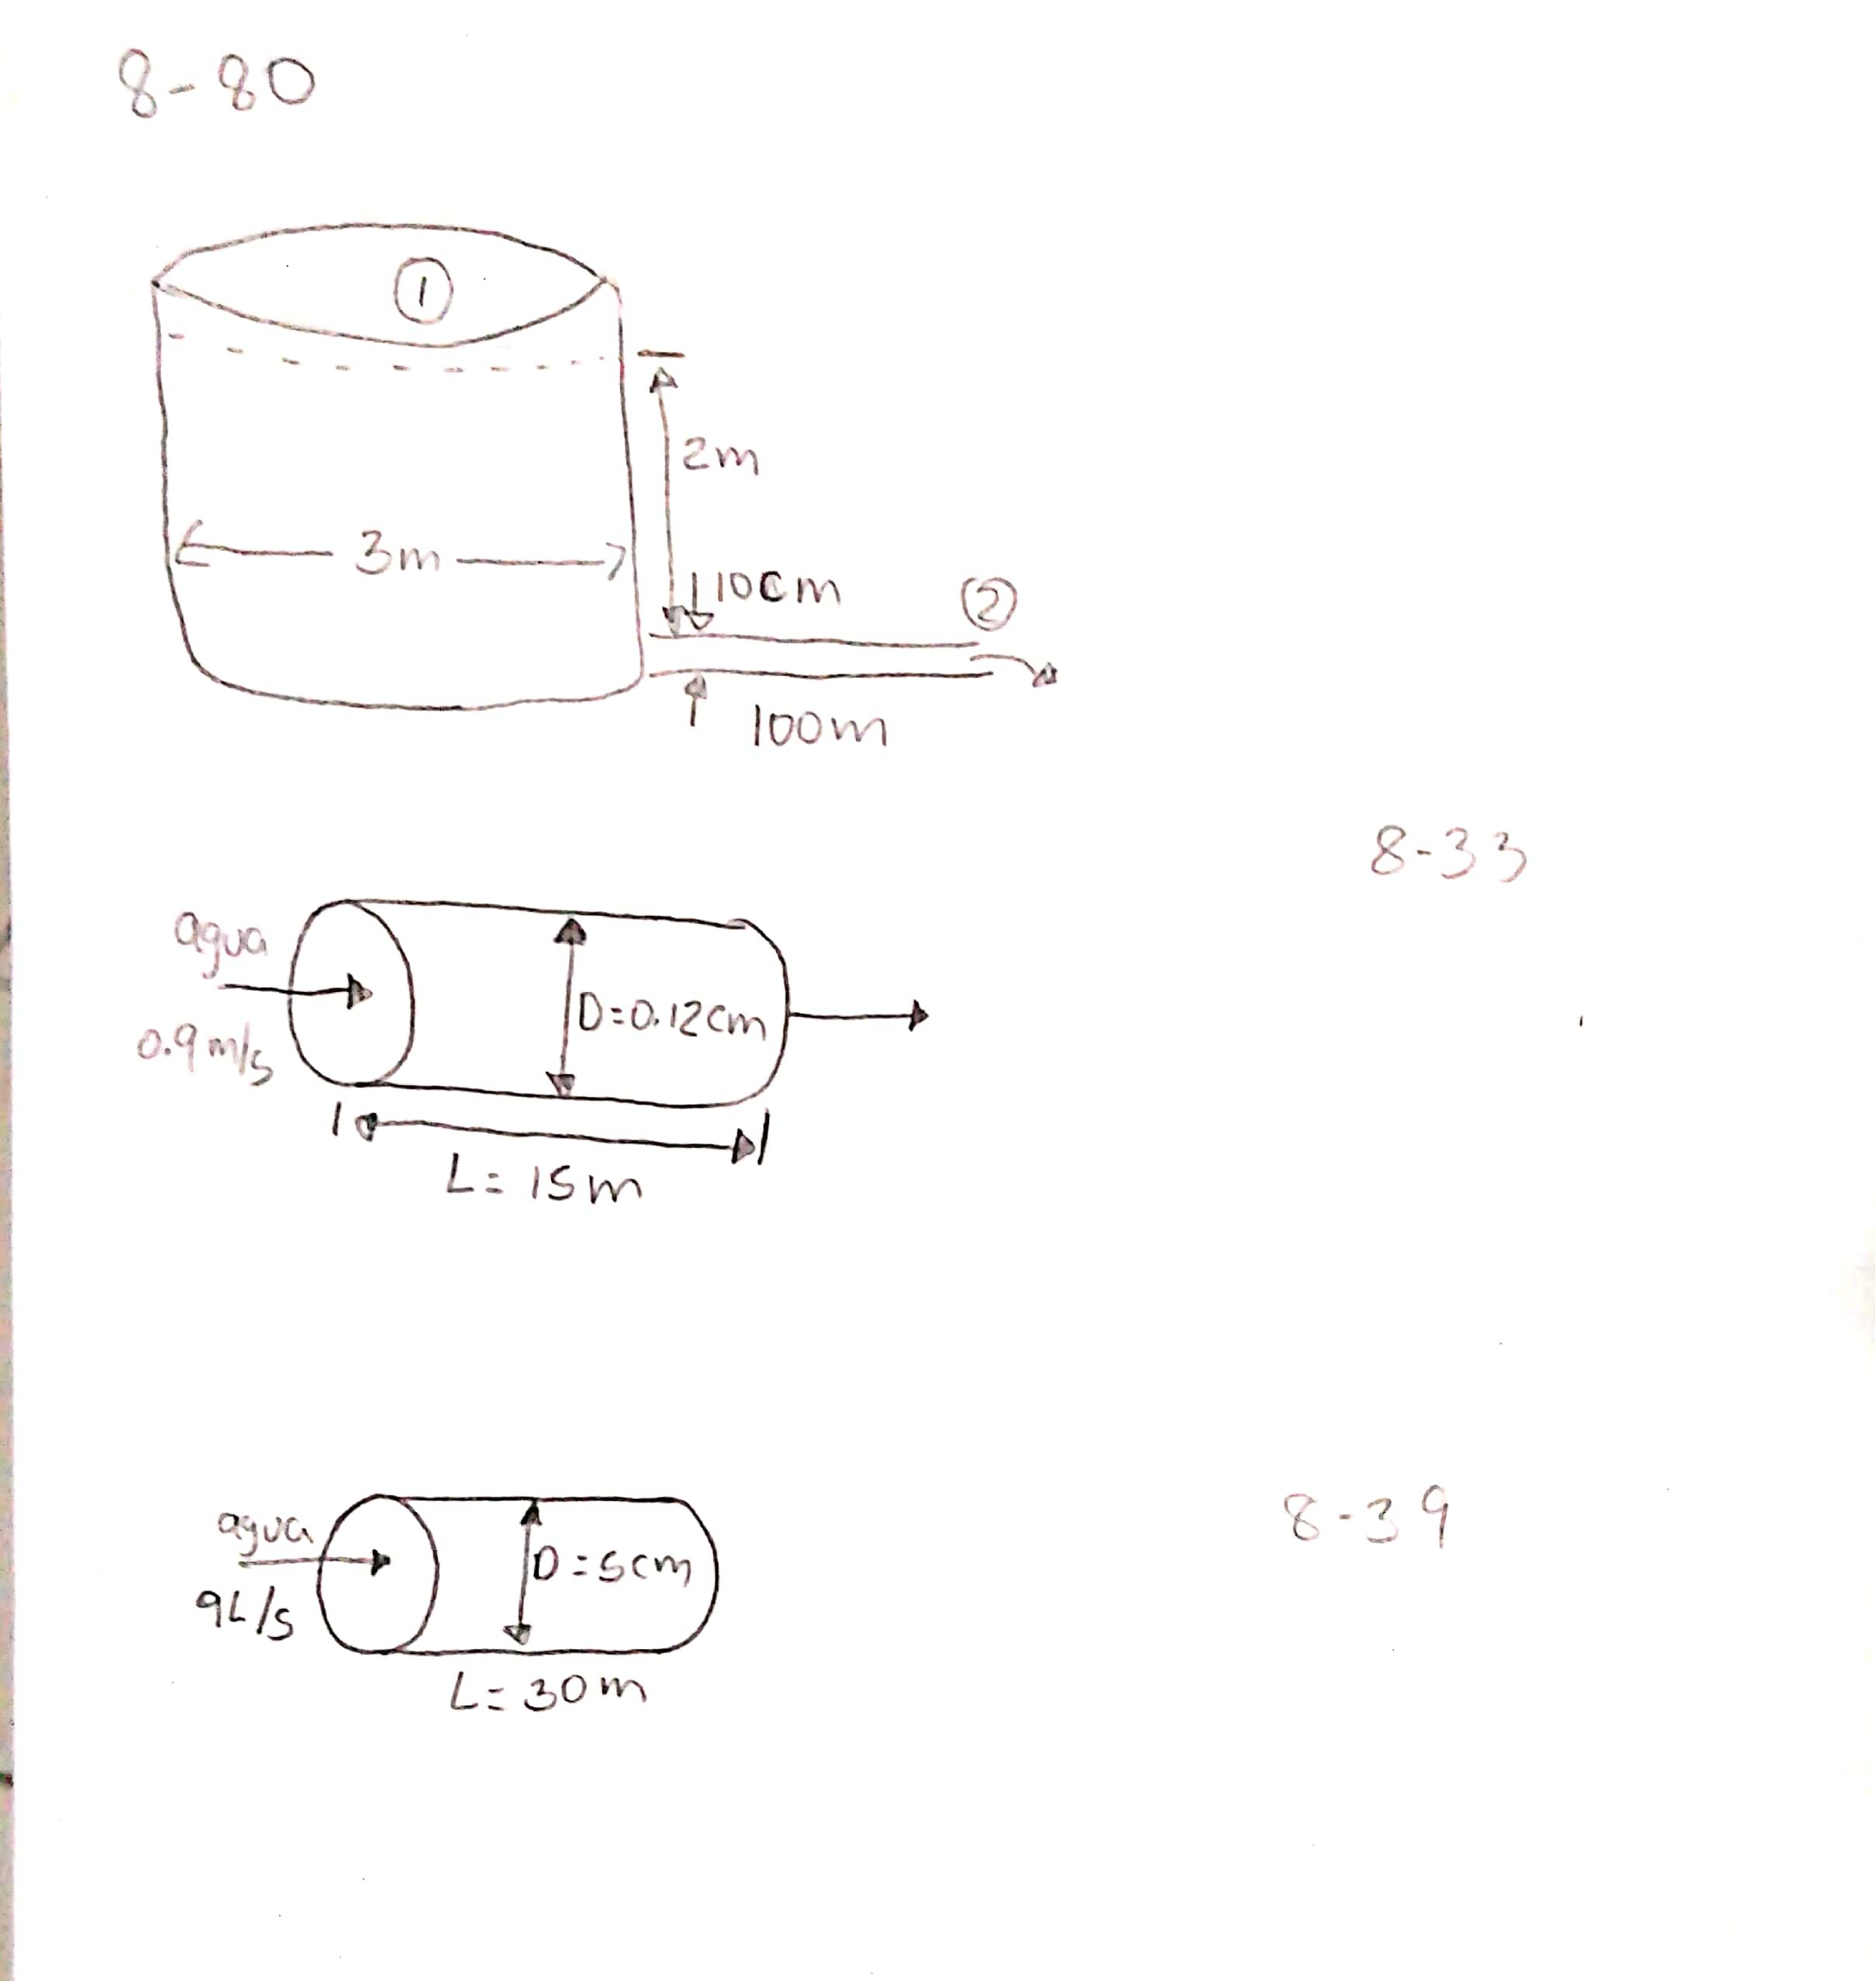 8-80
①
2m
3m
10cm
②
100m
8-33
agua
0.9 m/s
D=0.12cm
L= 15m
8-39
agua
9L/s
D=5cm
L= 30m